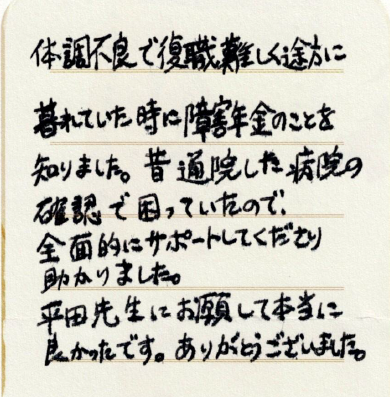 体調不良で復職難しく途方に
暮れていた時に障害年金のことを
知りました。昔通院した病院の
確認で困っていたので、
全面的にサポートしてくださり
助かりました。
平田先生にお願して本当に
良かったです。ありがとうございました。